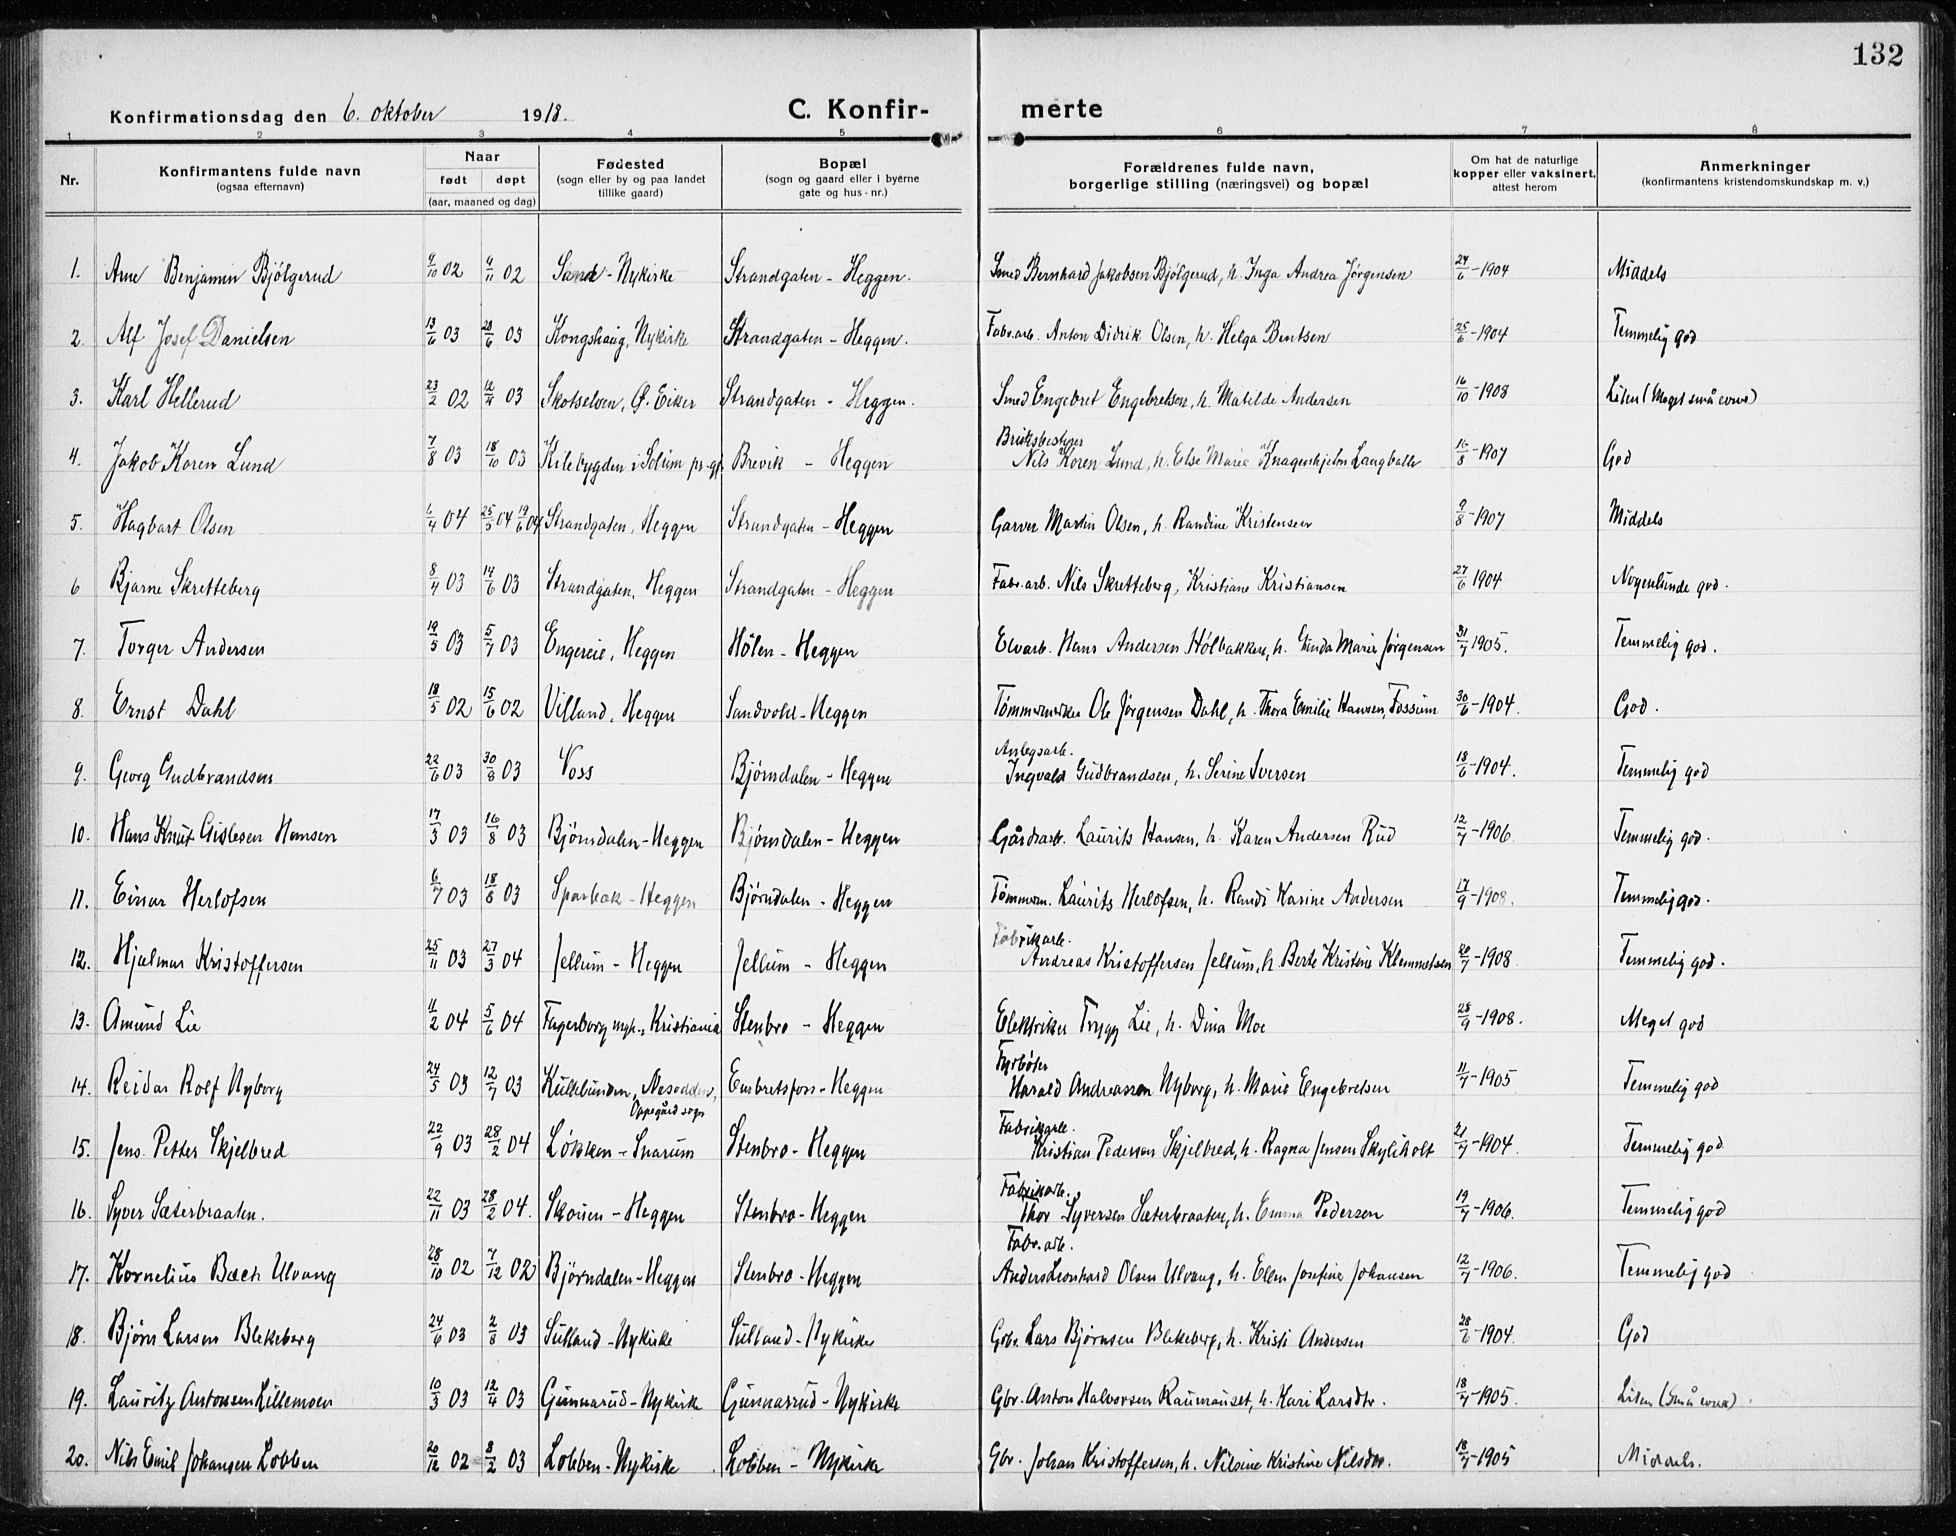 132
Konfirmationsdag den 6. oktober 1918.
C. Konfir-merte
1 2 3 4 5 6 7 8
Nr. | Konfirmantens fulde navn (ogsaa efternavn) | Naar født døpt (aar, maaned og dag) | Fødested (sogn eller by og paa landet tillike gaard) | Bopæl (sogn og gaard eller i byerne gate og hus-nr.) | Forældrenes fulde navn, borgerlige stilling (næringsvei) og bopæl | Om hat de naturlige kopper eller vaksinert, attest herom | Anmerkninger (konfirmantens kristendomskundskap m. v.)
1. Arne Benjamin Bjølgerud | 4/10 02 | 4/11 02 | Sand - Nykirke | Strandgaten - Heggen. | Smed Bernhard Jakobsen Bjølgerud, h. Inga Andrea Jørgensen | 24/6 - 1904 | Middels
2. Alf Josef Danielsen | 13/6 03 | 28/6 03 | Kongshaug, Nykirke | Strandgaten - Heggen. | Fabr.arb. Anton Didrik Olsen, h. Helga Bentsen | 25/6 - 1904 | Temmelig god
3. Karl Hellerud | 23/2 02 | 12/4 03 | Skotselven, Ø. Eiker | Strandgaten - Heggen. | Smed Engebret Engebretsen, h. Matilde Andersen | 16/10 - 1908 | Liten (Meget små evne)
4. Jakob Koren Lund | 7/8 03 | 18/10 03 | Kilebygden i Solum pr.gj. | Brevik - Heggen | Bruksbestyrer Nils Koren Lund, h. Else Marie Knagenhjelm Langballe | 16/8 - 1907 | God
5. Hagbart Olsen | 1/4 04 | 25/5 04 19/6 04 | Strandgaten, Heggen | Strandgaten - Heggen | Garver Martin Olsen, h. Randine Kristensen | 9/8 - 1907 | Middels
6 Bjarne Skretteberg | 8/4 03 | 14/6 03 | Strandgaten, Heggen | Strandgaten - Heggen | Fabr.arb. Nils Skretteberg, Kristiane Kristiansen | 27/6 1904 | Nogenlunde god.
7. Torger Andersen | 19/5 03 | 5/7 03 | Engereie, Heggen | Hølen - Heggen | Elvarb. Hans Andersen Hølbakken, h. Gunda Marie Jørgensen | 31/7 1905. | Temmelig god.
8. Ernst Dahl | 18/5 02 | 15/6 02 | Villand, Heggen | Sandvold - Heggen | Tømmermerker Ole Jørgensen Dahl, h. Thora Emilie Hansen, Fossum | 30/6 - 1904. | God.
9. Georg Gudbrandsen | 22/6 03 | 30/8 03 | Voss | Bjørndalen - Heggen | Anlegsarb. Ingvald Gudbrandsen, h. Serine Iversen | 18/6 - 1904. | Temmelig god
10. Hans Knut Gislesen Hansen | 17/3 03 | 16/8 03 | Bjørndalen - Heggen | Bjørndalen - Heggen | Gårdsarb. Laurits Hansen, h. Karen Andersen Rud | 12/7 - 1906. | Temmelig god.
11. Einar Herlofsen | 6/7 03 | 18/8 03 | Sparbak - Heggen | Bjørndalen - Heggen | Tømmerm. Laurits Herlofsen, h. Randi Karine Andersen | 17/9 - 1908. | Temmelig god.
12. Hjalmar Kristoffersen | 25/11 03 | 27/3 04 | Jellum - Heggen | Jellum - Heggen | Fabrikarb. Andreas Kristoffersen Jellum, h. Berte Kristine Klemmetsen | 20/7 - 1908 | Temmelig god.
13. Amund Lie | 11/2 04 | 5/6 04 | Fagerborg mgh., Kristiania | Stenbro - Heggen | Elektriker Trygg Lie, h. Dina Moe | 28/9 - 1908. | Meget god
14. Reidar Rolf Nyborg | 24/5 03 | 12/7 03 | Kullebunden, Nesodden, Oppegård sogn | Embretsfoss - Heggen | Fyrbøter Harald Andreassen Nyborg, h. Marie Engebretsen | 11/7 - 1905 | Temmelig god
15. Jens Petter Skjelbred | 22/9 03 | 28/2 04 | Løkken - Snarum | Stenbro - Heggen | Fabrikarb. Kristian Pedersen Skjelbred, h. Ragna Jensen Skyliholt | 21/7 - 1904. | Temmelig god
16. Syver Sæterbraaten. | 22/11 03 | 28/2 04. | Skouen - Heggen | Stenbro - Heggen | Fabrikarb. Thor Syversen Sæterbraaten, h. Emma Pedersen | 19/7 - 1906. | Temmelig god
17. Kornelius Bach Ulvang | 28/10 02 | 7/12 02 | Bjørndalen - Heggen | Stenbro - Heggen | Fabr. arb. Anders Leonhard Olsen Ulvang, h. Ellen Josefine Johansen | 12/7 - 1906. | Temmelig god
18. Bjørn Larsen Blekeberg | 24/6 03 | 2/8 03 | Sulland - Nykirke | Sulland - Nykirke | Gbr. Lars Bjørnsen Blekeberg, h. Kristi Andersen | 28/6 - 1904. | God
19. Lauritz Antonsen Lillemoen | 10/3 03 | 12/4 03 | Gunnarud - Nykirke | Gunnarrud - Nykirke | Gbr. Anton Halvorsen Raumauset, h. Kari Larsdtr. | 18/7 - 1905. | Liten (Små evner)
20. Nils Emil Johansen Lobben | 20/12 02 | 8/2 03 | Lobben - Nykirke | Lobben - Nykirke | Gbr. Johan Kristoffersen, h. Nilsine Kristine Nilsdtr. | 18/7 - 1905 | Middels.